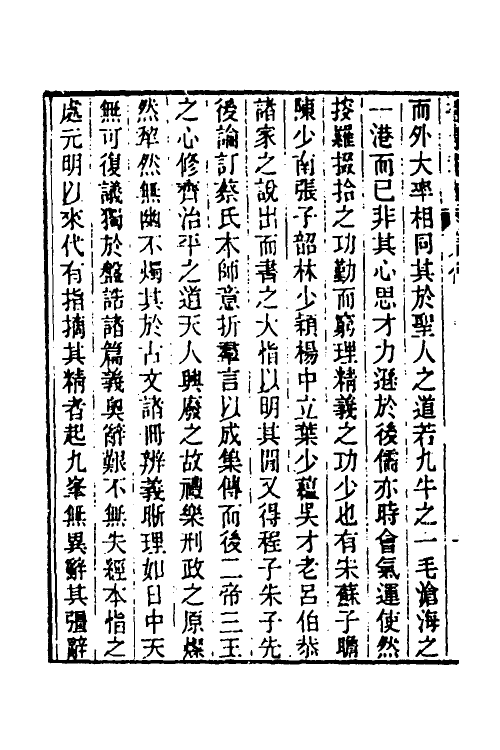 而外大率相同其於聖人之道若九牛之一毛滄海之
一港而已非其心思才力遜於後儒亦時會氣運使然
按羅掇拾之功勤而窮理精義之功少也有宋蘇子瞻
陳少南張子韶林少穎楊中立葉少蘊吳才老呂伯恭
諸家之說出而書之大指以明其間又得程子朱子先
後論訂蔡氏本師意折羣言以成集傳而後二帝三王
之心修齊治平之道天人興廢之故禮樂刑政之原燦
然犂然無幽不燭其於古文諸冊辨義晰理如日中天
無可復議獨於盤誥諸篇義奧辭艱不無失經本指之
處元明以來代有指摘其精者起九峯無異辭其彊辭